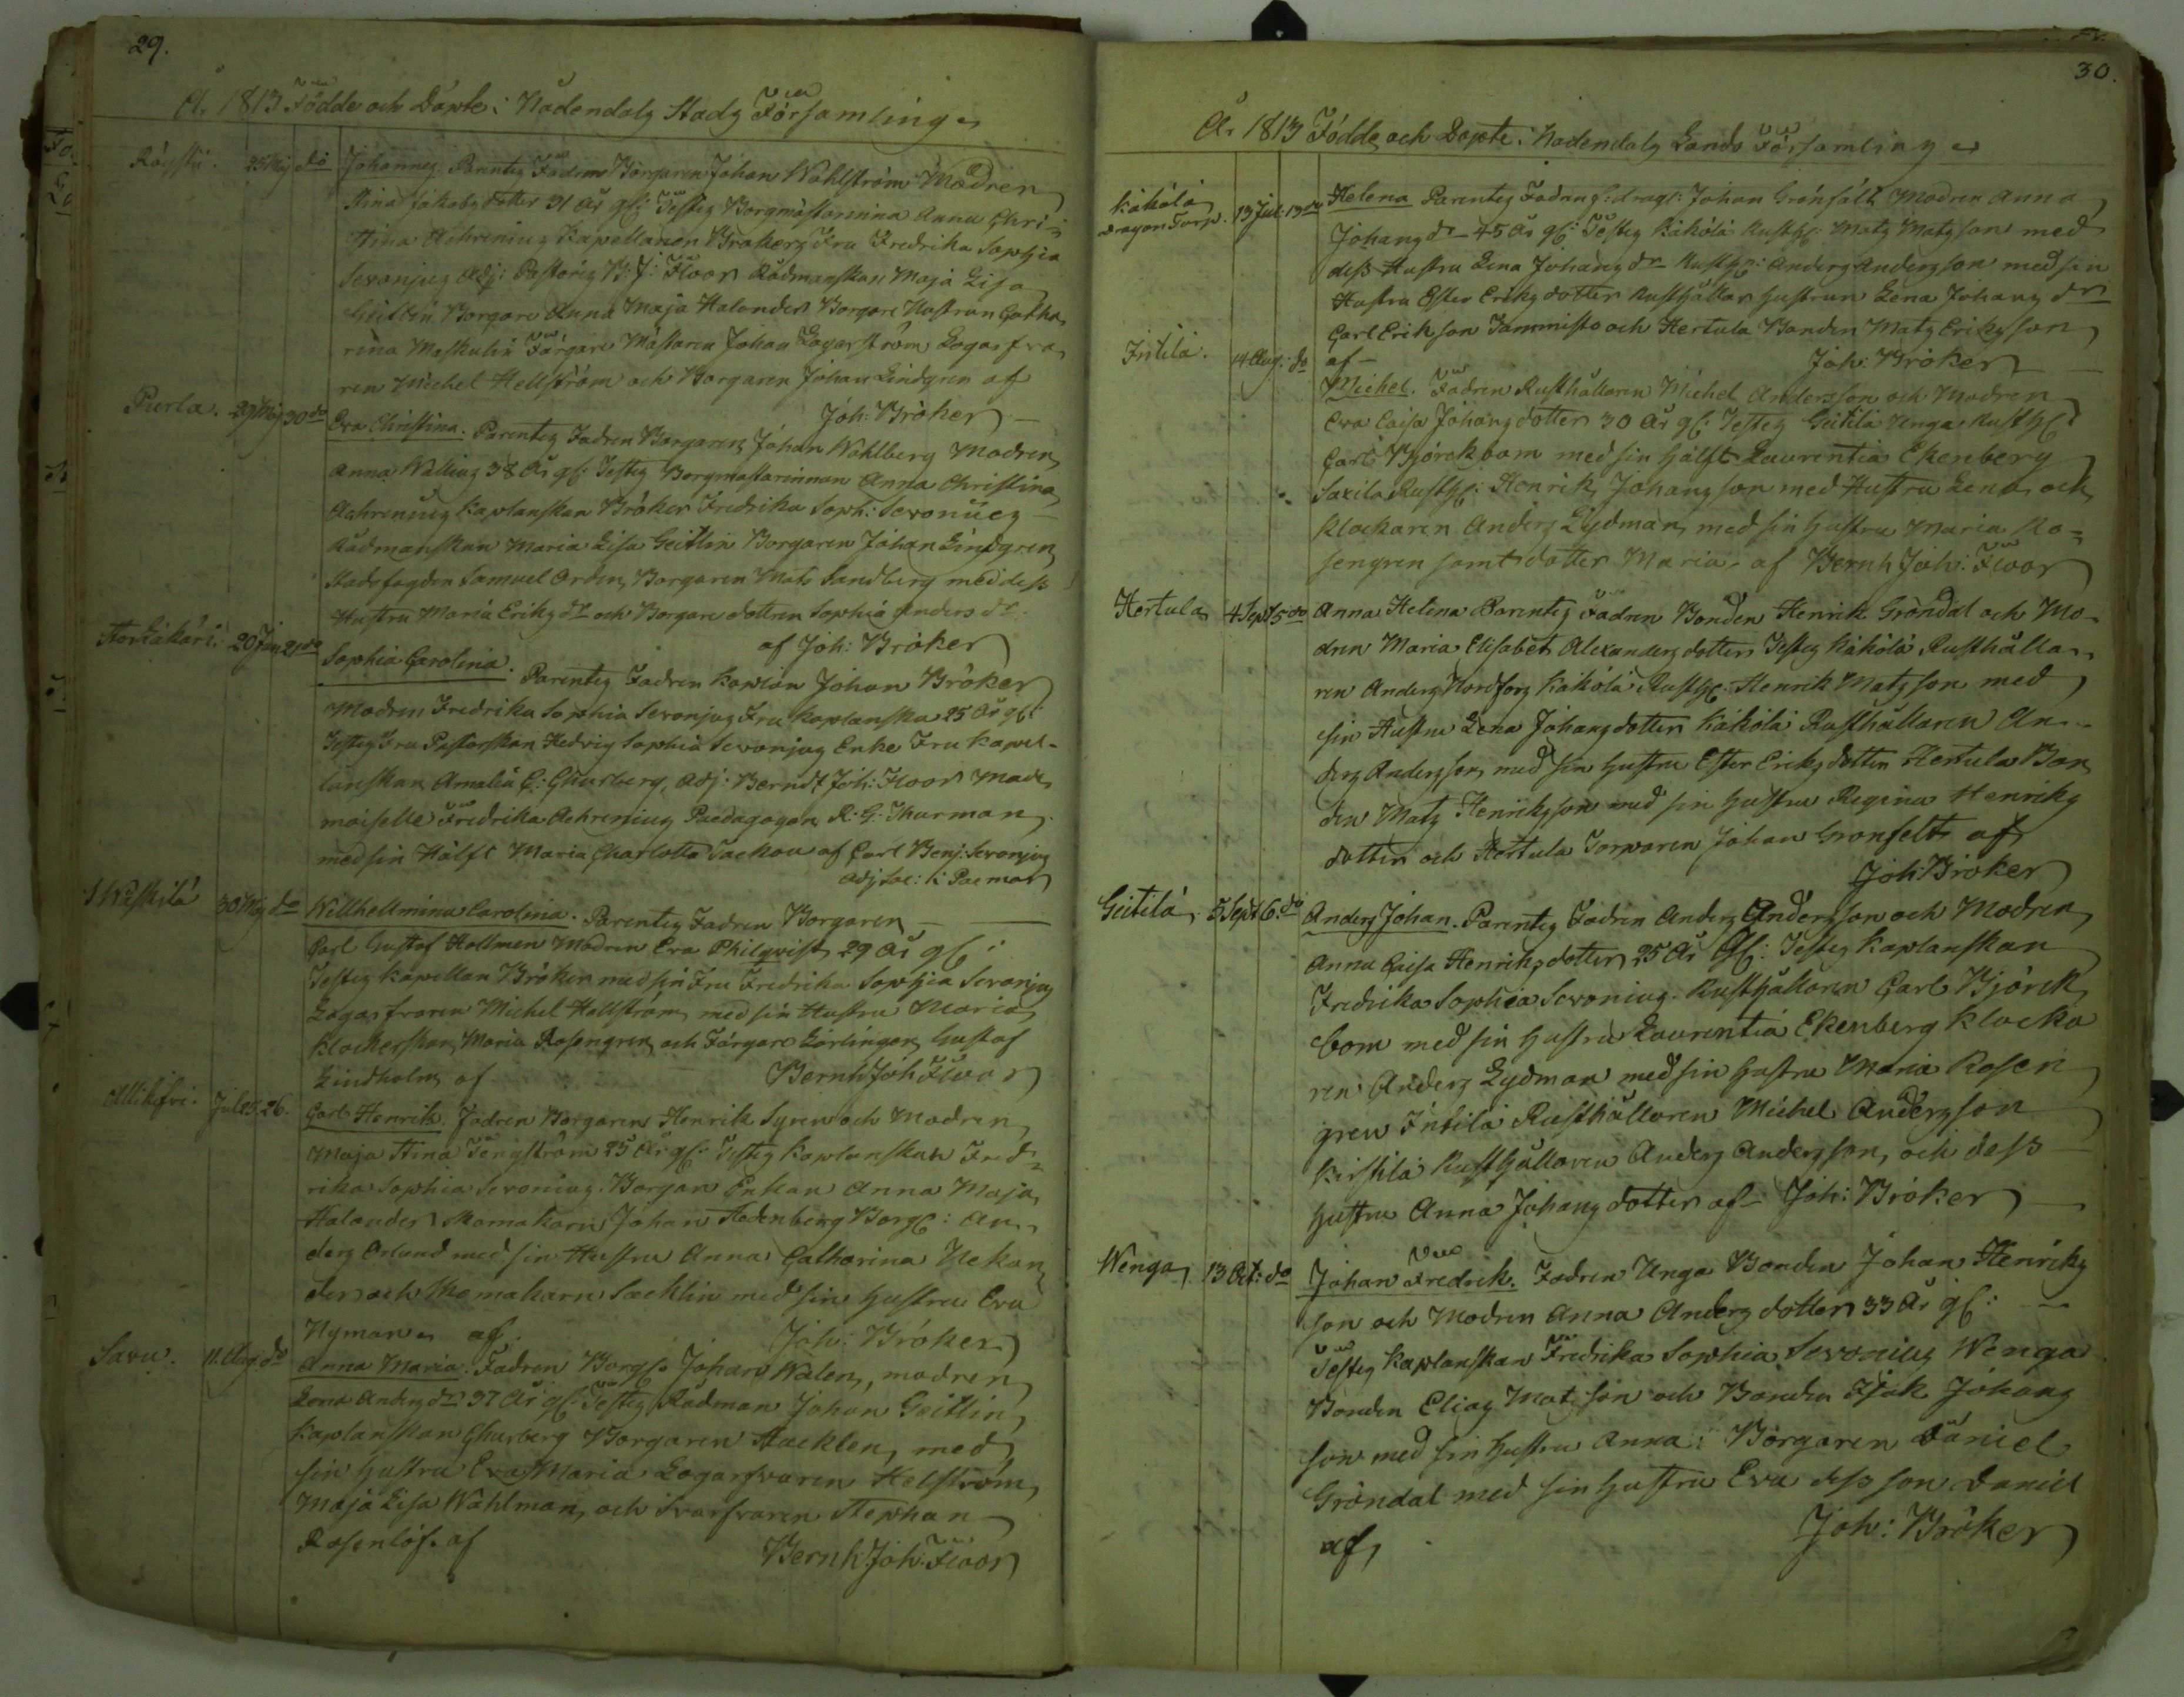 29.
År 1813 Födde och Döpte i Nådendals Stads Församling
Röystti. 25 Maj do Johannes. Parentes Fadren Borgaren Johan Wahlström Modren
Stina Jakobs dotter 31 År gl: Testes Borgmästarinna Anna Chri-
stina Achrenius Kapellanen Brökers Fru Fredrika Sophia
Sevonjus Adj: Pastoris B: J: Floor Rådmanskan Maja Lisa
Geitlin Borgare Anna Maja Helander Borgare Hustrun Catha
rina Maskulin Färgare Mästaren Johan Lagerström Logarfva
ren Michel Hellström och Borgaren Johan Lindgren af
Joh: Bröker
Purla. 29 Maj 30 do Eva Christina. Parentes Fadren Borgaren Johan Wahlberg Modren
Anna Walling 38 År gl: Testes Borgmästarinnan Anna Christina
Achrenius Kaplanskan Bröker Fredrika Soph: Sevonius
Rådmanskan Maria Lisa Geitlin Borgaren Johan Lindgren
Stadsfogden Samuel Orden, Borgaren Mats Sandberg med dess
Hustru Maria Eriks dr och Borgare dottren Sophia Anders dr
af Joh: Bröker
20 Jun 21 do Sophia Carolina. Parentes Fadren Kaplan Johan Bröker
Modren Fredrika Sophia Sevonjus Fru Kaplanska 25 År gl:
Testes Fru Pastorskan Hedvig Sophia Sevonjus Enke Fru Kapel-
lanskan Amalia C: Ghurberg, Adj: Berndt Joh: Floor Made
moiselle Fredrika Achrenius Paedagogen R. G. Thurman
med sin Hälft Maria Charlotta Sackou af Carl Benj: Sevonjus
Adj Sac: i Paemar
30 Maj do Willhellmina Carolina. Parentes Fadren Borgaren
Carl Gustaf Hollmen Modren Eva Philqvist 29 År gl:
Testes Kapellan Bröker med sin Fru Fredrika Sophia Sevonjus
Logarfvaren Michel Hellström med sin Hustru Maria
Klockerskan Maria Rosengren och Färgare Lärlingen Gustaf
Lindholm af Bernh Joh Floor
Allikifvi. Jul 25. 26. Carl Henrik. Fadren Borgaren Henrik Syren och Modren
Maja Stina Tengström 25 År gl: Testes Kaplanskan Fred-
rika Sophia Sevonius. Borgar Enkan Anna Maja
Helander Skomakarn Johan Hedenberg Borg: An-
ders Orlund med sin Hustru Anna Catharina Nekan
der och Skomakarn Sacklin med sin hustru Eva
Nyman af Joh: Bröker
Savu. 11. Aug do Anna Maria. Fadren Borg: Johan Walen, modren
Lena Anders dr 37 År gl: Testes Rådman Johan Geitlin,
Kaplanskan Ghurberg Borgaren Stacklen, med
sin hustru Eva Maria Logarfvaren Helström,
Maja Lisa Wahlman, och Svarfvaren Stephan
Rosenlöf. af Bernh Joh: Floor
30.
År 1813 Födde och Döpte i Nadendals Lands Församling
Käkölä Dragon Torp. 13 Jul: 13 do Helena Parentes Fadren f: drag: Johan Grönfält Modren Anna
Johans dr 45 År gl: Testes Käkölä Rusth: Mats Matsson med
dess Hustru Lena Johans dr Rusth: Anders Andersson med sin
Hustru Ester Eriks dotter Rusthållar hustrun Lena Johans dr
Carl Erikson Tammisto och Hertula Bonden Mats Eriksson
af Joh: Bröker
Intilä. 14 Aug: do Michel. Fadren Rusthållaren Michel Andersson och Modren
Eva Caisa Johans dotter 30 År gl: Testes Geitilä Unga Rusth:
Carl Björckbom med sin hälft Laurentia Ekenberg
Saxila Rusth: Henrik Johansson med Hustru Lena, och
Klockaren Anders Lydman, med sin hustru Maria Ro-
sengren samt dotter Maria. af Bernh Joh: Floor
Hertula 4 Sept 5 do Anna Helena Parentes Fadren Bonden Henrik Gröndal och Mo-
dren Maria Elisabet Alexanders dotter Testes Käkölä Rusthålla-
ren Anders Nordfors Käkölä Rusth: Henrik Matsson med
sin Hustru Lena Johans dotter Käkölä Rusthållaren An-
ders Andersson, med sin hustru Ester Eriks dotter Hertula Bon
den Mats Henriksson med sin hustru Regina Henriks
dotter och Hertula Torparen Johan Gronfelt af
Joh Bröker
Geitilä, 5 Sept 6. do Anders Johan. Parentes Fadren Anders Andersson och Modren
Anna Caisa Henriks dotter 25 År Gl: Testes Kaplanskan
Fredrika Sophia Sevonius. Rusthållaren Carl Björck
bom med sin hustru Laurentia Ekenberg Klocka
ren Anders Lydman med sin hustru Maria Rosen
gren Intilä Rusthållaren Michel Andersson
Kirstilä Rusthållaren Anders Andersson, och dess
hustru Anna Johans dotter af Joh: Bröker
Wenga, 13 Oct: do Johan Fredrik. Fadren Unga Bonden Johan Henriks
son och Modren Anna Anders dotter 33 År gl:
Testes Kaplanskan Fredrika Sophia Sevonius Wenga
Bonden Elias Matsson och Bonden Isak Johans
son med sin hustru Anna: Borgaren Daniel
Gröndal med sin hustru Eva dess son Daniel
af, Joh: Bröker